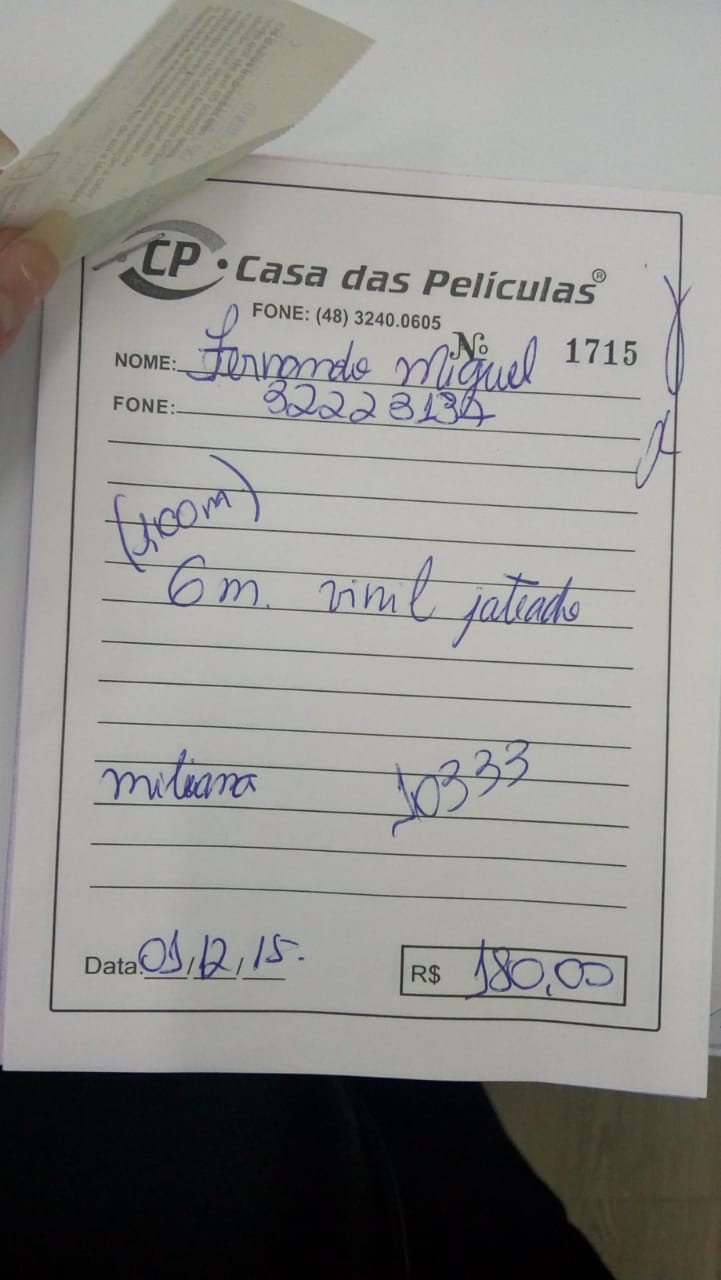 CP · Casa das Películas®
FONE: (48) 3240.0605
Nº 1715
NOME: Fernando Miguel
FONE: 32223134
(1,00m)
6 m. vinil jateado
10333
Data: 01/12/15.
R$ 180,00